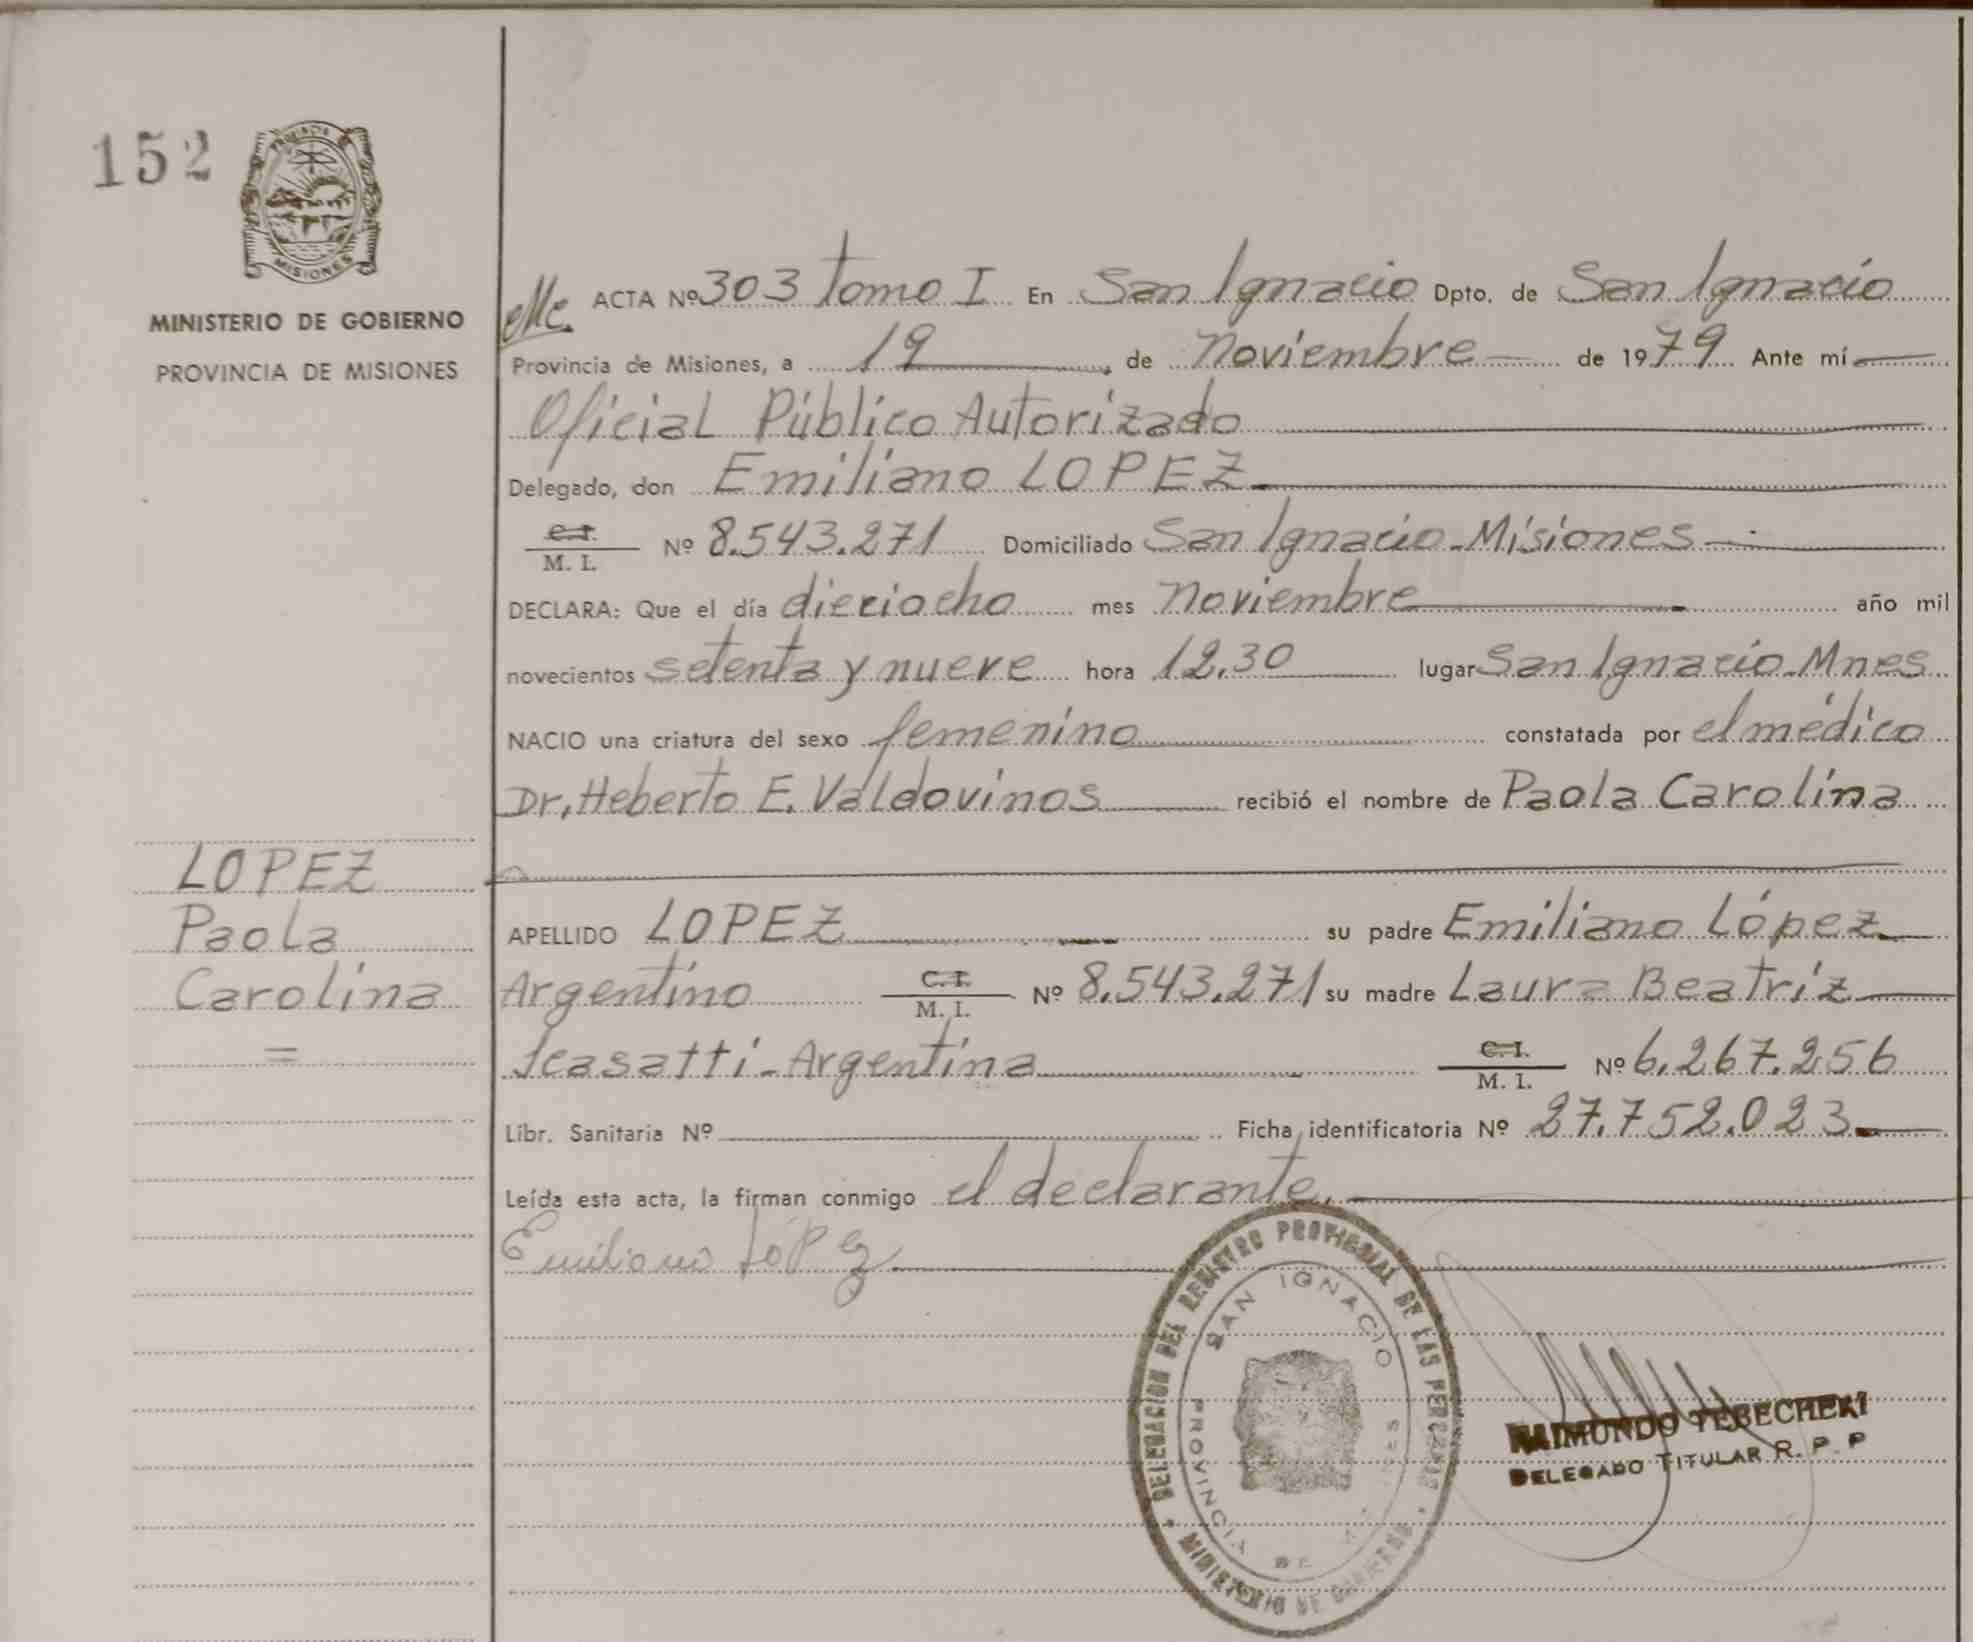 152
PROVINCIA DE
MISIONES
MINISTERIO DE GOBIERNO
PROVINCIA DE MISIONES
ACTA Nº 303 tomo I En San Ignacio Dpto. de San Ignacio
Provincia de Misiones, a 19, de Noviembre de 1979 Ante mí
Oficial Público Autorizado
Delegado, don Emiliano LOPEZ
C.I.
M. I. Nº 8.543.271 Domiciliado San Ignacio-Misiones
DECLARA: Que el día dieciocho mes Noviembre año mil
novecientos setenta y nueve hora 12.30 lugar San Ignacio-Mnes
NACIO una criatura del sexo femenino constatada por el médico
Dr. Heberto E. Valdovinos recibió el nombre de Paola Carolina
LOPEZ
Paola
Carolina
=
APELLIDO LOPEZ su padre Emiliano López
Argentino C.I. M. I. Nº 8.543.271 su madre Laura Beatriz
Scasatti-Argentina C.I. M. I. Nº 6.267.256
Libr. Sanitaria Nº Ficha identificatoria Nº 27.752.023
Leída esta acta, la firman conmigo el declarante.
Emiliano López
DELEGACION DEL REGISTRO PROVINCIAL DE LAS PERSONAS
MINISTERIO DE GOBIERNO
SAN IGNACIO
PROVINCIA DE MISIONES
RAIMUNDO
DELEGADO TITULAR R. P. P